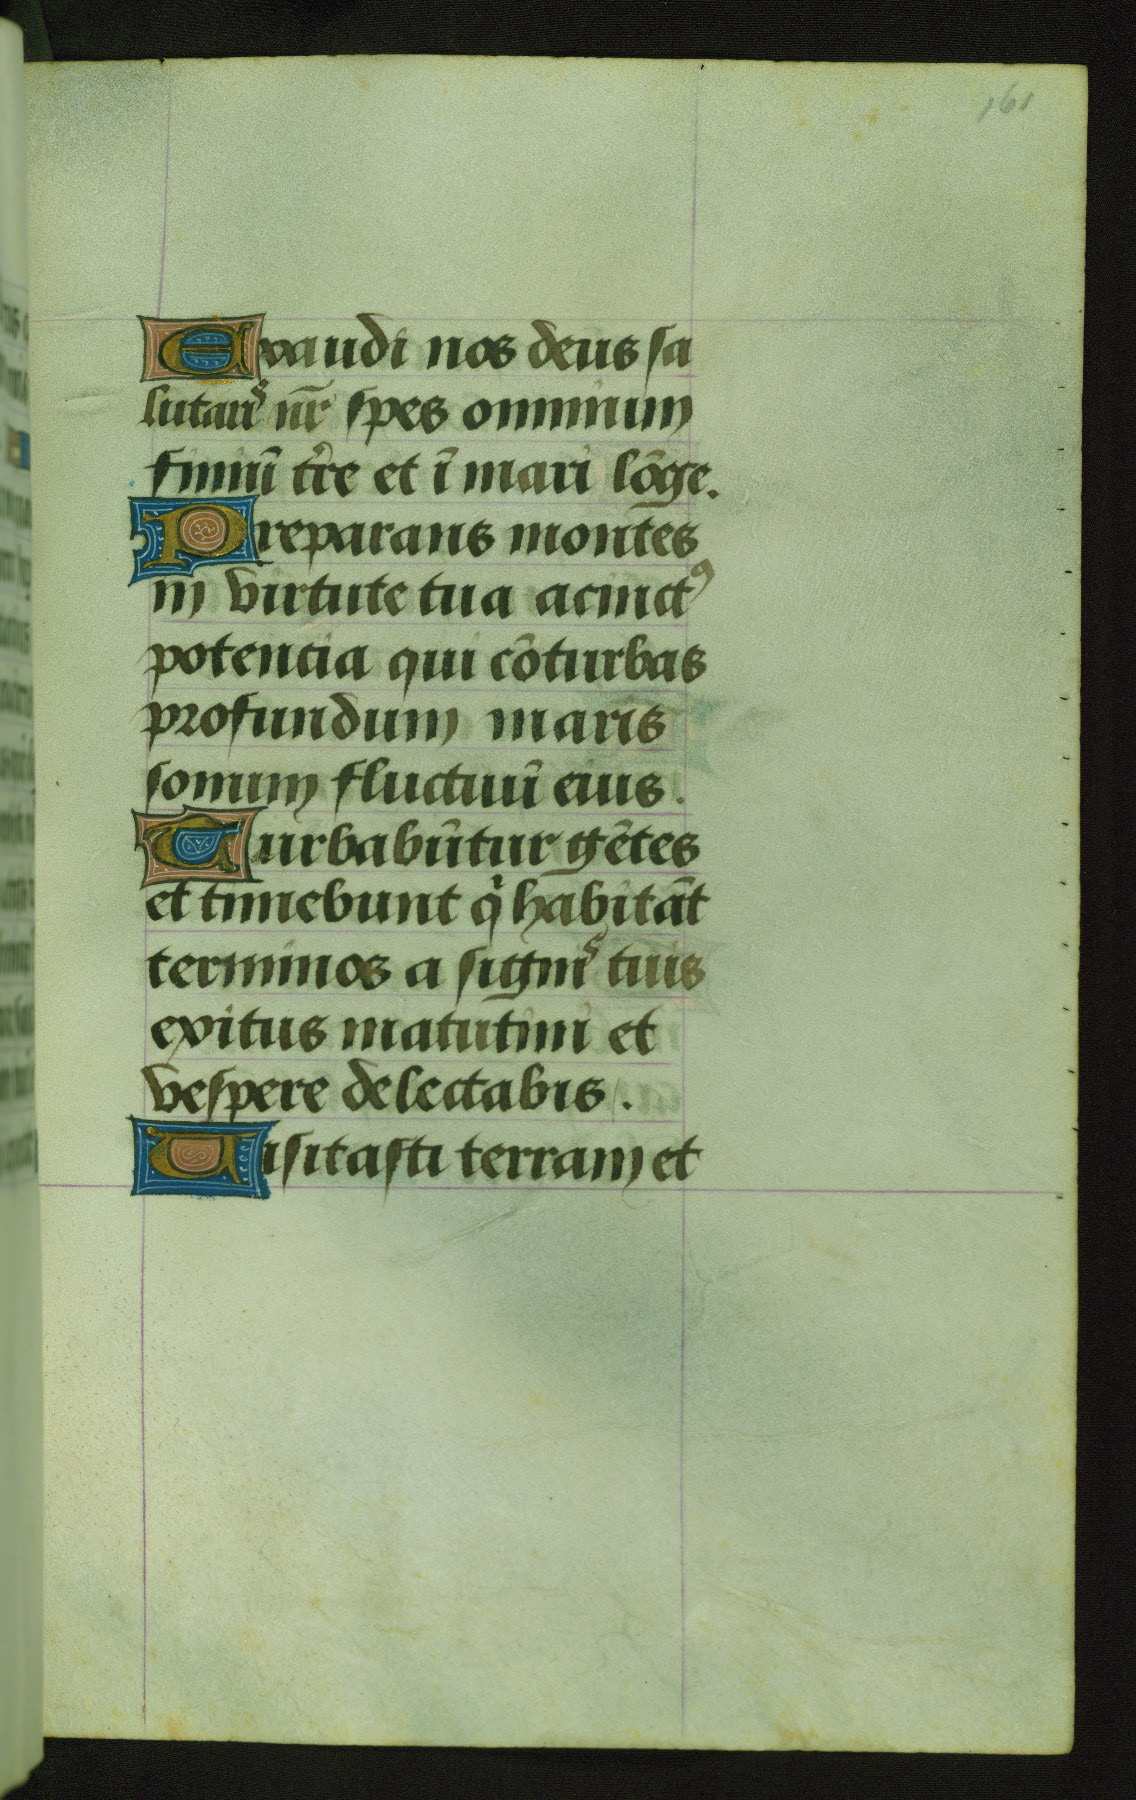 161
Exaudi nos deus sa
lutarꝭ nr̃ spes omnium
finiũ tr̃re et ĩ mari lõge.
Preparans montes
in virtute tua acinctꝰ
potencia qui cõturbas
profundum maris
sonum fluctuũ eius.
Turbabũtur gẽtes
et timebunt qͥ habitãt
terminos a signiꝭ tuis
exitus matutini et
vespere delectabis.
Uisitasti terram et